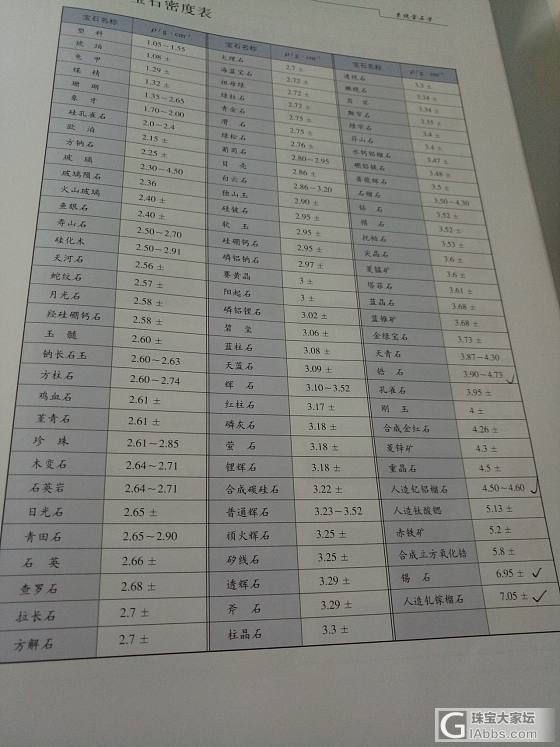 系统宝石学
宝石密度表
宝石名称 ρ/g·cm⁻³ 宝石名称 ρ/g·cm⁻³ 宝石名称 ρ/g·cm⁻³
塑料 1.05~1.55 大理石 2.7 ± 透视石 3.3 ±
琥珀 1.08 ± 海蓝宝石 2.72 ± 橄榄石 3.34 ±
龟甲 1.29 ± 祖母绿 2.72 ± 翡翠 3.34 ±
煤精 1.32 ± 绿柱石 2.72 ± 黝帘石 3.35 ±
珊瑚 1.35~2.65 青金石 2.75 ± 绿帘石 3.4 ±
象牙 1.70~2.00 滑石 2.75 ± 符山石 3.4 ±
硅孔雀石 2.0~2.4 绿松石 2.76 ± 水钙铝榴石 3.47 ±
欧泊 2.15 ± 葡萄石 2.80~2.95 硼铝镁石 3.48 ±
方钠石 2.25 ± 贝壳 2.86 ± 蔷薇辉石 3.5 ±
玻璃 2.30~4.50 白云石 2.86~3.20 石榴石 3.50~4.30
玻璃陨石 2.36 独山玉 2.90 ± 钻石 3.52 ±
火山玻璃 2.40 ± 硅铍石 2.95 ± 榍石 3.52 ±
鱼眼石 2.40 ± 软玉 2.95 ± 托帕石 3.53 ±
寿山石 2.50~2.70 硅硼钙石 2.95 ± 尖晶石 3.6 ±
硅化木 2.50~2.91 磷铝钠石 2.97 ± 菱锰矿 3.6 ±
天河石 2.56 ± 赛黄晶 3 ± 塔菲石 3.61 ±
蛇纹石 2.57 ± 阳起石 3 ± 蓝晶石 3.68 ±
月光石 2.58 ± 磷铝锂石 3.02 ± 蓝锥矿 3.68 ±
羟硅硼钙石 2.58 ± 碧玺 3.06 ± 金绿宝石 3.73 ±
玉髓 2.60 ± 蓝柱石 3.08 ± 天青石 3.87~4.30
钠长石玉 2.60~2.63 天蓝石 3.09 ± 锆石 3.90~4.73
方柱石 2.60~2.74 辉石 3.10~3.52 孔雀石 3.95 ±
鸡血石 2.61 ± 红柱石 3.17 ± 刚玉 4 ±
堇青石 2.61 ± 磷灰石 3.18 ± 合成金红石 4.26 ±
珍珠 2.61~2.85 萤石 3.18 ± 菱锌矿 4.3 ±
木变石 2.64~2.71 锂辉石 3.18 ± 重晶石 4.5 ±
石英岩 2.64~2.71 合成碳硅石 3.22 ± 人造钇铝榴石 4.50~4.60
日光石 2.65 ± 普通辉石 3.23~3.52 人造钛酸锶 5.13 ±
青田石 2.65~2.90 顽火辉石 3.25 ± 赤铁矿 5.2 ±
石英 2.66 ± 矽线石 3.25 ± 合成立方氧化锆 5.8 ±
查罗石 2.68 ± 透辉石 3.29 ± 锡石 6.95 ±
拉长石 2.7 ± 斧石 3.29 ± 人造钆镓榴石 7.05 ±
方解石 2.7 ± 柱晶石 3.3 ±
珠宝大家坛
GIAbbs.com